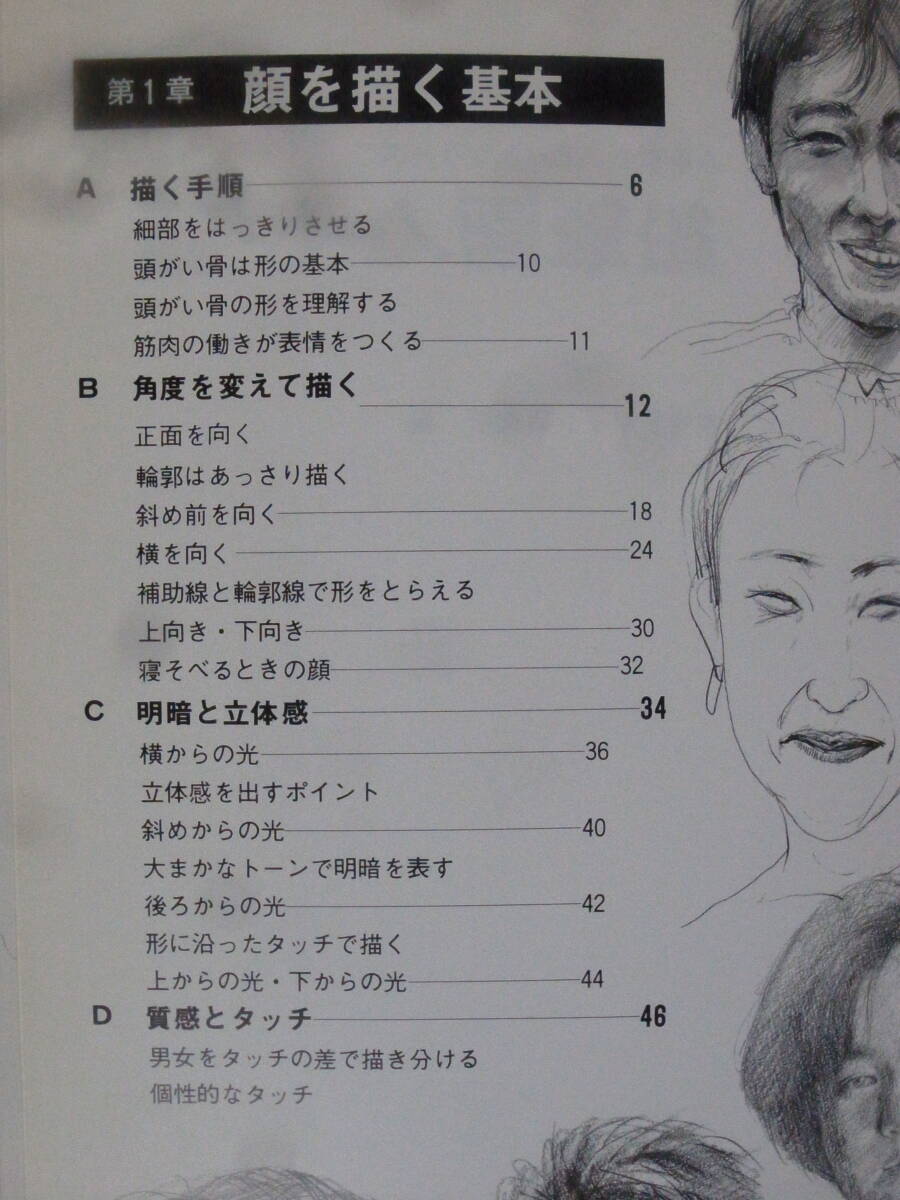 第1章 顔を描く基本
A 描く手順 6
細部をはっきりさせる
頭がい骨は形の基本 10
頭がい骨の形を理解する
筋肉の働きが表情をつくる 11
B 角度を変えて描く 12
正面を向く
輪郭はあっさり描く
斜め前を向く 18
横を向く 24
補助線と輪郭線で形をとらえる
上向き・下向き 30
寝そべるときの顔 32
C 明暗と立体感 34
横からの光 36
立体感を出すポイント
斜めからの光 40
大まかなトーンで明暗を表す
後ろからの光 42
形に沿ったタッチで描く
上からの光・下からの光 44
D 質感とタッチ 46
男女をタッチの差で描き分ける
個性的なタッチ